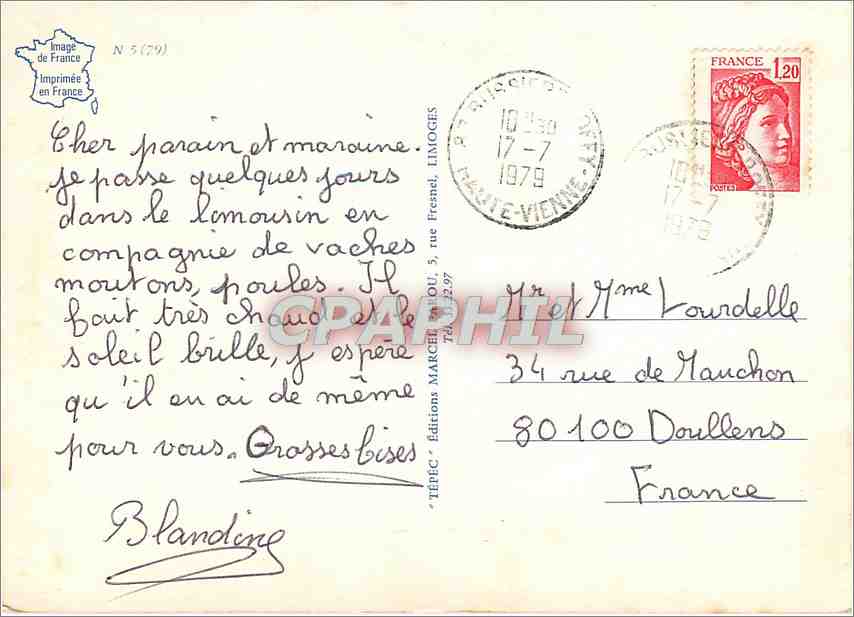 Image
de France
Imprimée
en France
N 5 (79)
Cher parain et maraine.
je passe quelques jours
dans le limousin en
compagnie de vaches
moutons, poules. Il
fait très chaud et le
soleil brille, j espère
qu'il en ai de même
pour vous. Grosses bises
Blandine
"TÉPÉC" Éditions MARCEL rue Fresnel, LIMOGES
10 H30
17 - 7
1979
HAUTE-VIENNE
FRANCE
1,20
POSTES
17 - 7
1979
CPAPHIL
Mr et Mme Lourdelle
34 rue de Mauchon
80100 Doullens
France